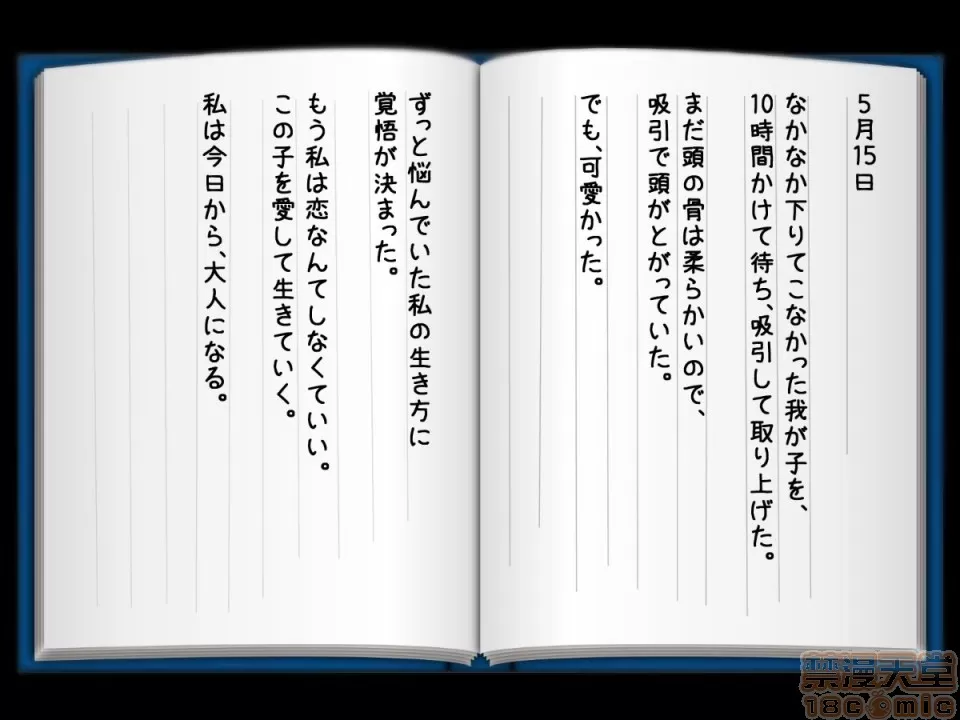 5月15日
なかなか下りてこなかった我が子を、
10時間かけて待ち、吸引して取り上げた。
まだ頭の骨は柔らかいので、
吸引で頭がとがっていた。
でも、可愛かった。
ずっと悩んでいた私の生き方に
覚悟が決まった。
もう私は恋なんてしなくていい。
この子を愛して生きていく。
私は今日から、大人になる。
禁漫天堂
18comic